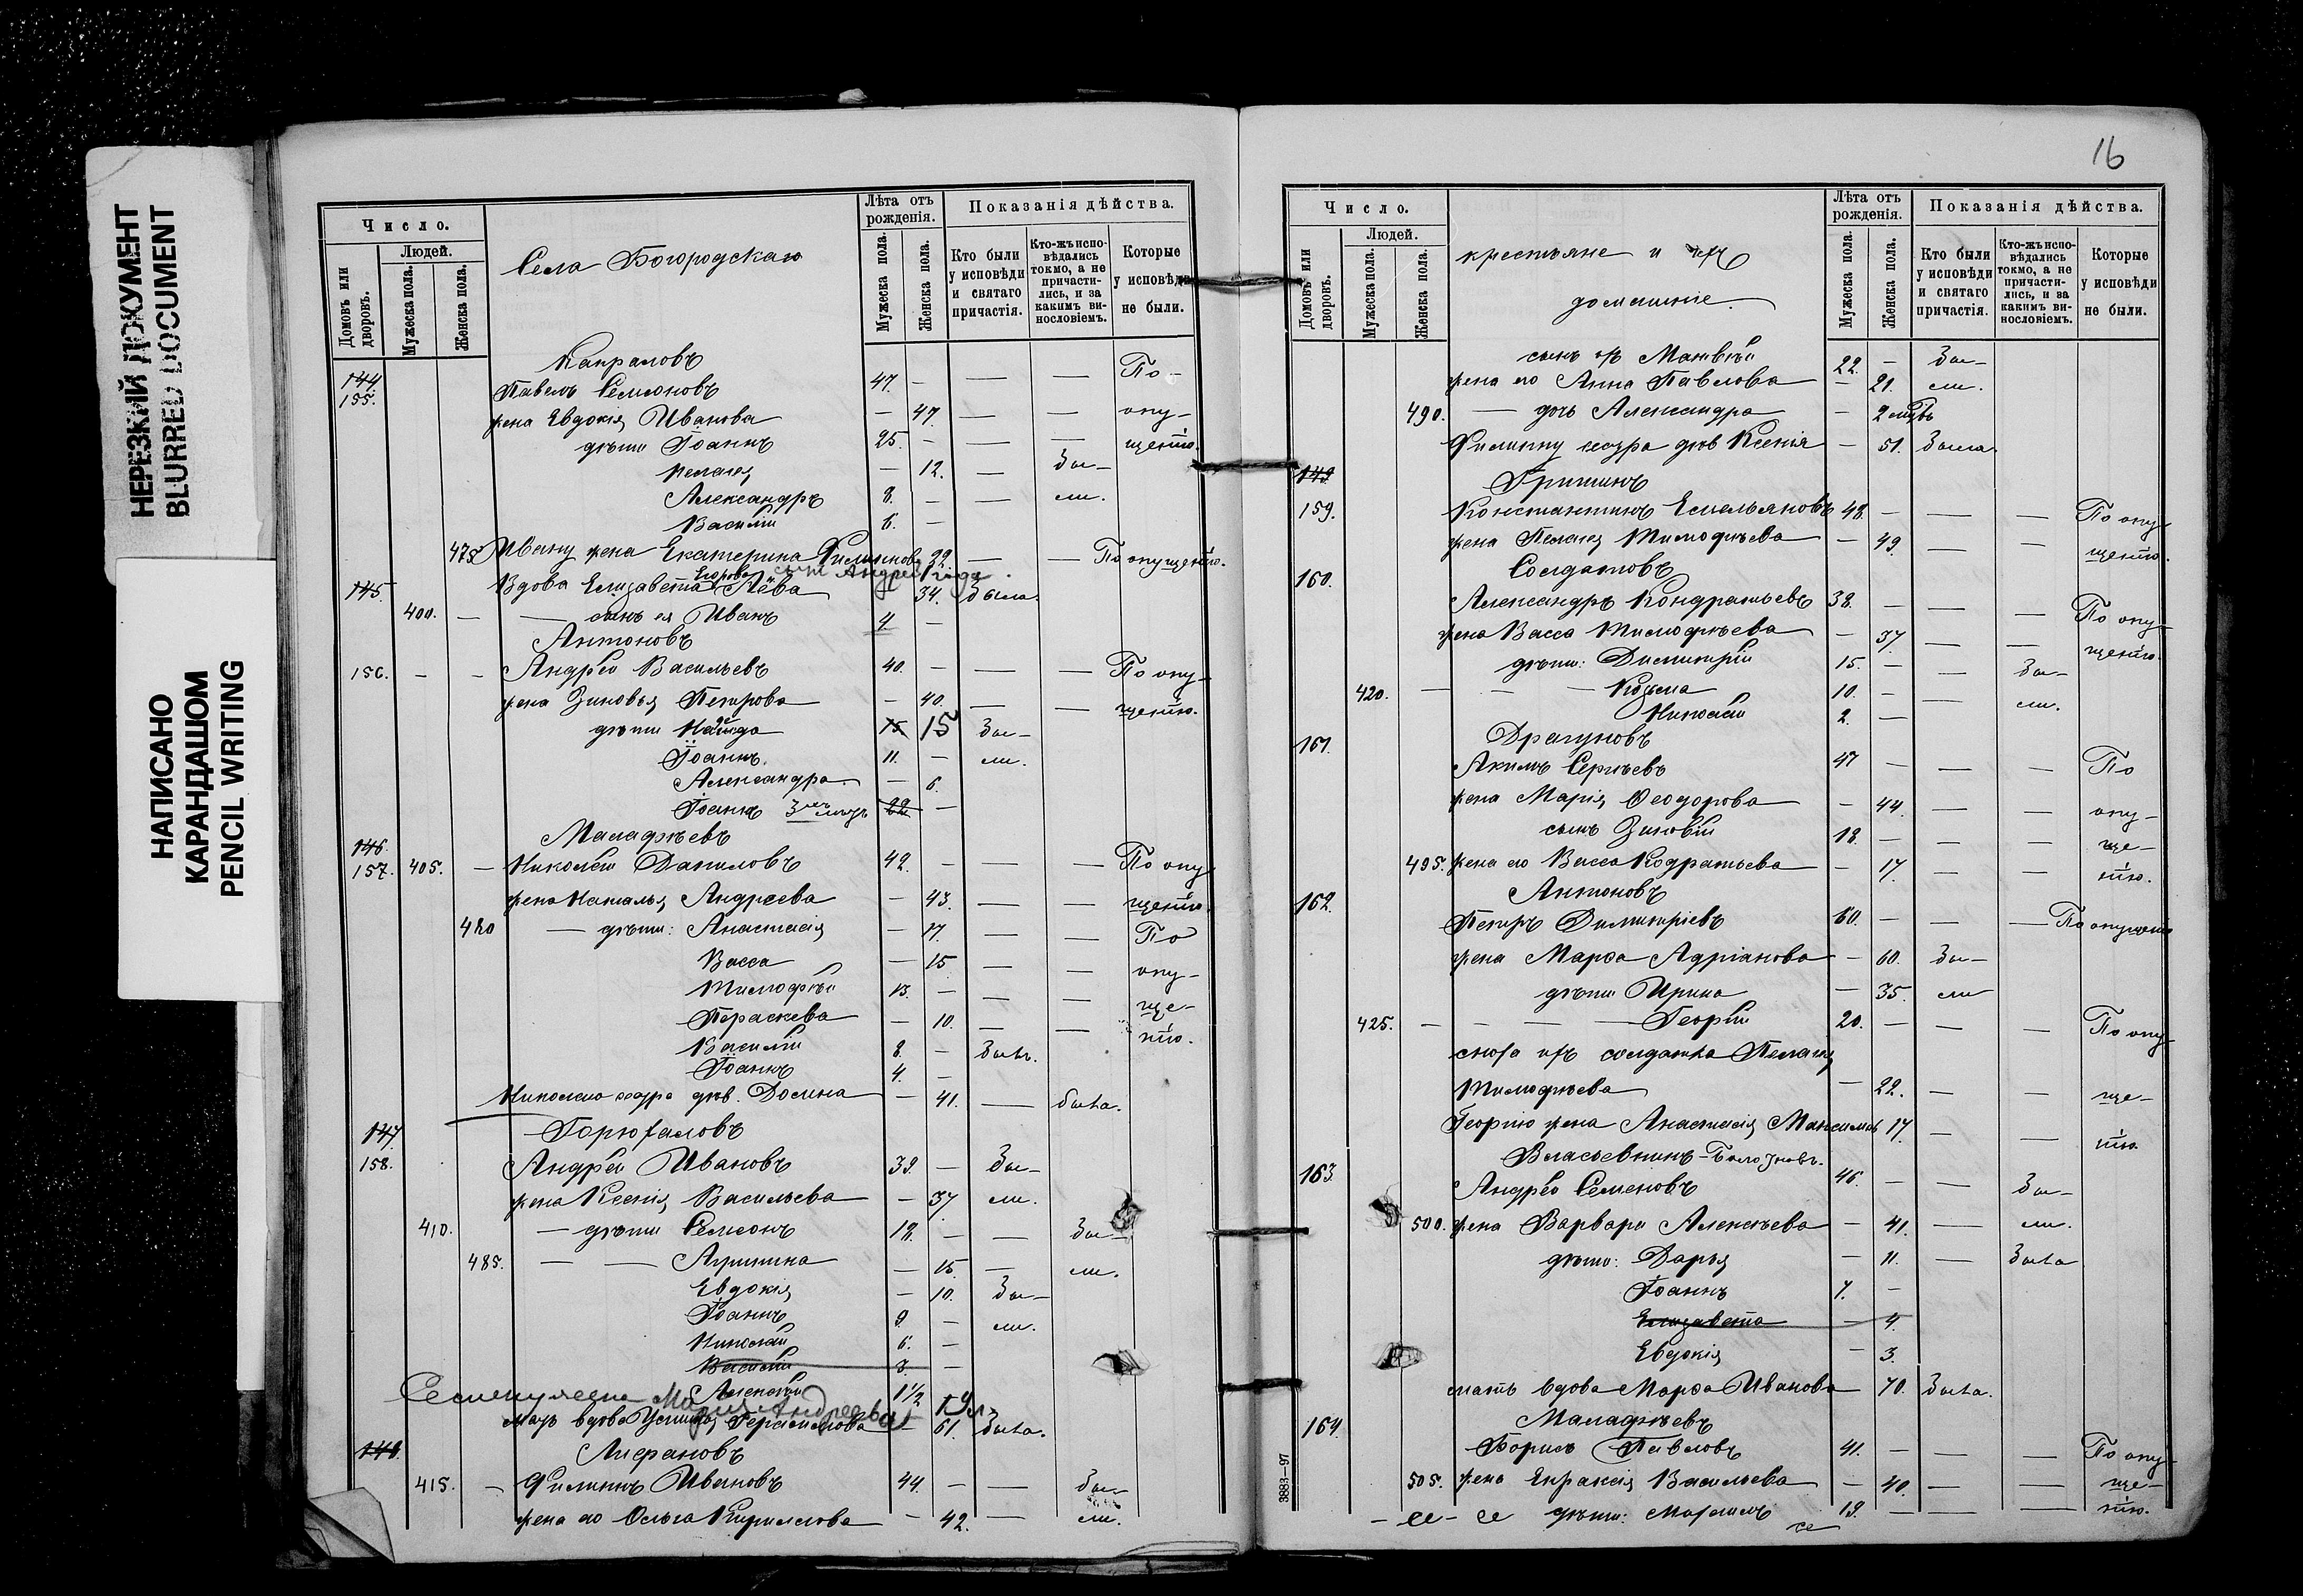 НЕРЕЗКИЙ ДОКУМЕНТ
BLURRED DOCUMENT
НАПИСАНО
КАРАНДАШОМ
PENCIL WRITING
Число.
Людей.
Домовъ или дворовъ.
Мужеска пола.
Женска пола.
Села Богородскаго
Лѣта отъ рожденія.
Мужеска пола.
Женска пола.
Показанія дѣйства.
Кто были у исповѣди и святаго причастія.
Кто-жъ исповѣдались токмо, а не причастились, и за какимъ винословіемъ.
Которые у исповѣди не были.
Капраловъ
144. 155. Павелъ Семіоновъ 47. – — — По-
жена Евдокія Иванова – 47. — — опу-
дѣти Іоаннъ 25. – — — щенію.
Пелагія – 12. — бы-
Александръ 8. – — ли.
Василій 6. –
475 Ивану жена Екатерина Филипова 32. — — По опущенію.
сынъ Андрей 1 года
145. Вдова Елизавета Егорова 34. была.
400. — — сынъ ея Иванъ 4. –
Антоновъ
156. – – Андрей Васильевъ 40. – — — По опу-
жена Зиновья Петрова – 40. — — щенію.
дѣти 15 15 бы-
Іоаннъ. 11. – ли.
Александра – 6.
Іоаннъ 22 –
Малафѣевъ
146. 157. 405. – Николай Даниловъ 42. – — — По опу
жена Наталья Андреева – 43. — — щенію.
480 — дѣти: Анастасія – 17. — — По
Васса – 15 — — опу-
Тимофѣй 13. – — — ще-
Параскева – 10. — — нію.
Василій 8. – быль.
Іоаннъ 4. –
Николаю сестра дѣв. Домна – 41. — была.
147 Горюхаловъ
158. Андрей Ивановъ 39. – бы-
жена Ксенія Васильева – 37 ли.
410. — дѣти Семіонъ 18. – — бы-
485. — — Агрипина – 15 — ли.
Евдокія – 10. бы-
Іоаннъ 9. – ли.
Николай 6. –
Василій 3. –
Алексѣй 1 1/2
Марія Андреева
мать вдова Устинія Герасимова – 61. была.
148. Лифановъ
415. – Филиппъ Ивановъ 44. – — бы-
жена его Ольга Кирилова – 42. — ли.
16
Число.
Людей.
Домовъ или дворовъ.
Мужеска пола.
Женска пола.
крестьяне и ихъ
домашніе.
Лѣта отъ рожденія.
Мужеска пола.
Женска пола.
Показанія дѣйства.
Кто были у исповѣди и святаго причастія.
Кто-жъ исповѣдались токмо, а не причастились, и за какимъ винословіемъ.
Которые у исповѣди не были.
сынъ ихъ Матвѣй 22. – бы-
жена его Анна Павлова – 21. ли.
490. — дочь Александра – 2
Филиппу сестра дѣв Ксенія – 51. была.
149 Гришинъ
159. Константинъ Емельяновъ 48. – — — По опу-
жена Пелагія Тимофѣева – 49. — — щенію.
160. Солдатовъ
Александръ Кондратьевъ 38. – — — По опу-
жена Васса Тимофѣева – 37. — — щенію.
дѣти: Димитрій 15. – — бы-
420. — – — Козьма 10. – — ли.
Николай 2. –
161. Драгуновъ
Акимъ Сергѣевъ 47 – — — По
жена Марія Ѳеодорова – 44. — — опу-
сынъ Зиновій 18. – — — ще-
495. жена его Васса Кодратьева – 17. — — нію.
162. Антоновъ
Петръ Димитріевъ 60. – — — По опущенію
жена Марѳа Адріанова – 60. бы-
дѣти Ирина – 35. ли
425. – – — — Георгій 20. – — — По опу-
сноха ихъ солдатка Пелагія
Тимофѣева – 22. — ще-
Георгію жена Анастасія Максимов 17. — — нію.
163. Власьевнинъ-
Андрей Семеновъ 46. – — бы-
500. жена Варвара Алексѣева – 41. — ли.
дѣти: Дарья – 11. — была
Іоаннъ 7. –
Елизавета – 4.
Евдокія – 3.
мать вдова Марѳа Иванова 70. была.
164. Малафѣевъ
Борисъ Павловъ 41. – — — По опу-
505. жена Евраксія Васильева – 40. — — ще-
дѣти: Максимъ 19. – — — нію.
3883—97